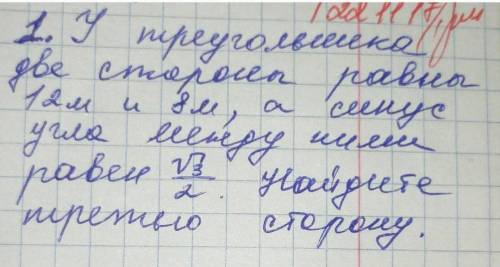 1. У треугольника
две стороны равны
12м и 8м, а синус
угла между ними
равен √3/2. Найдите
третью сторону.